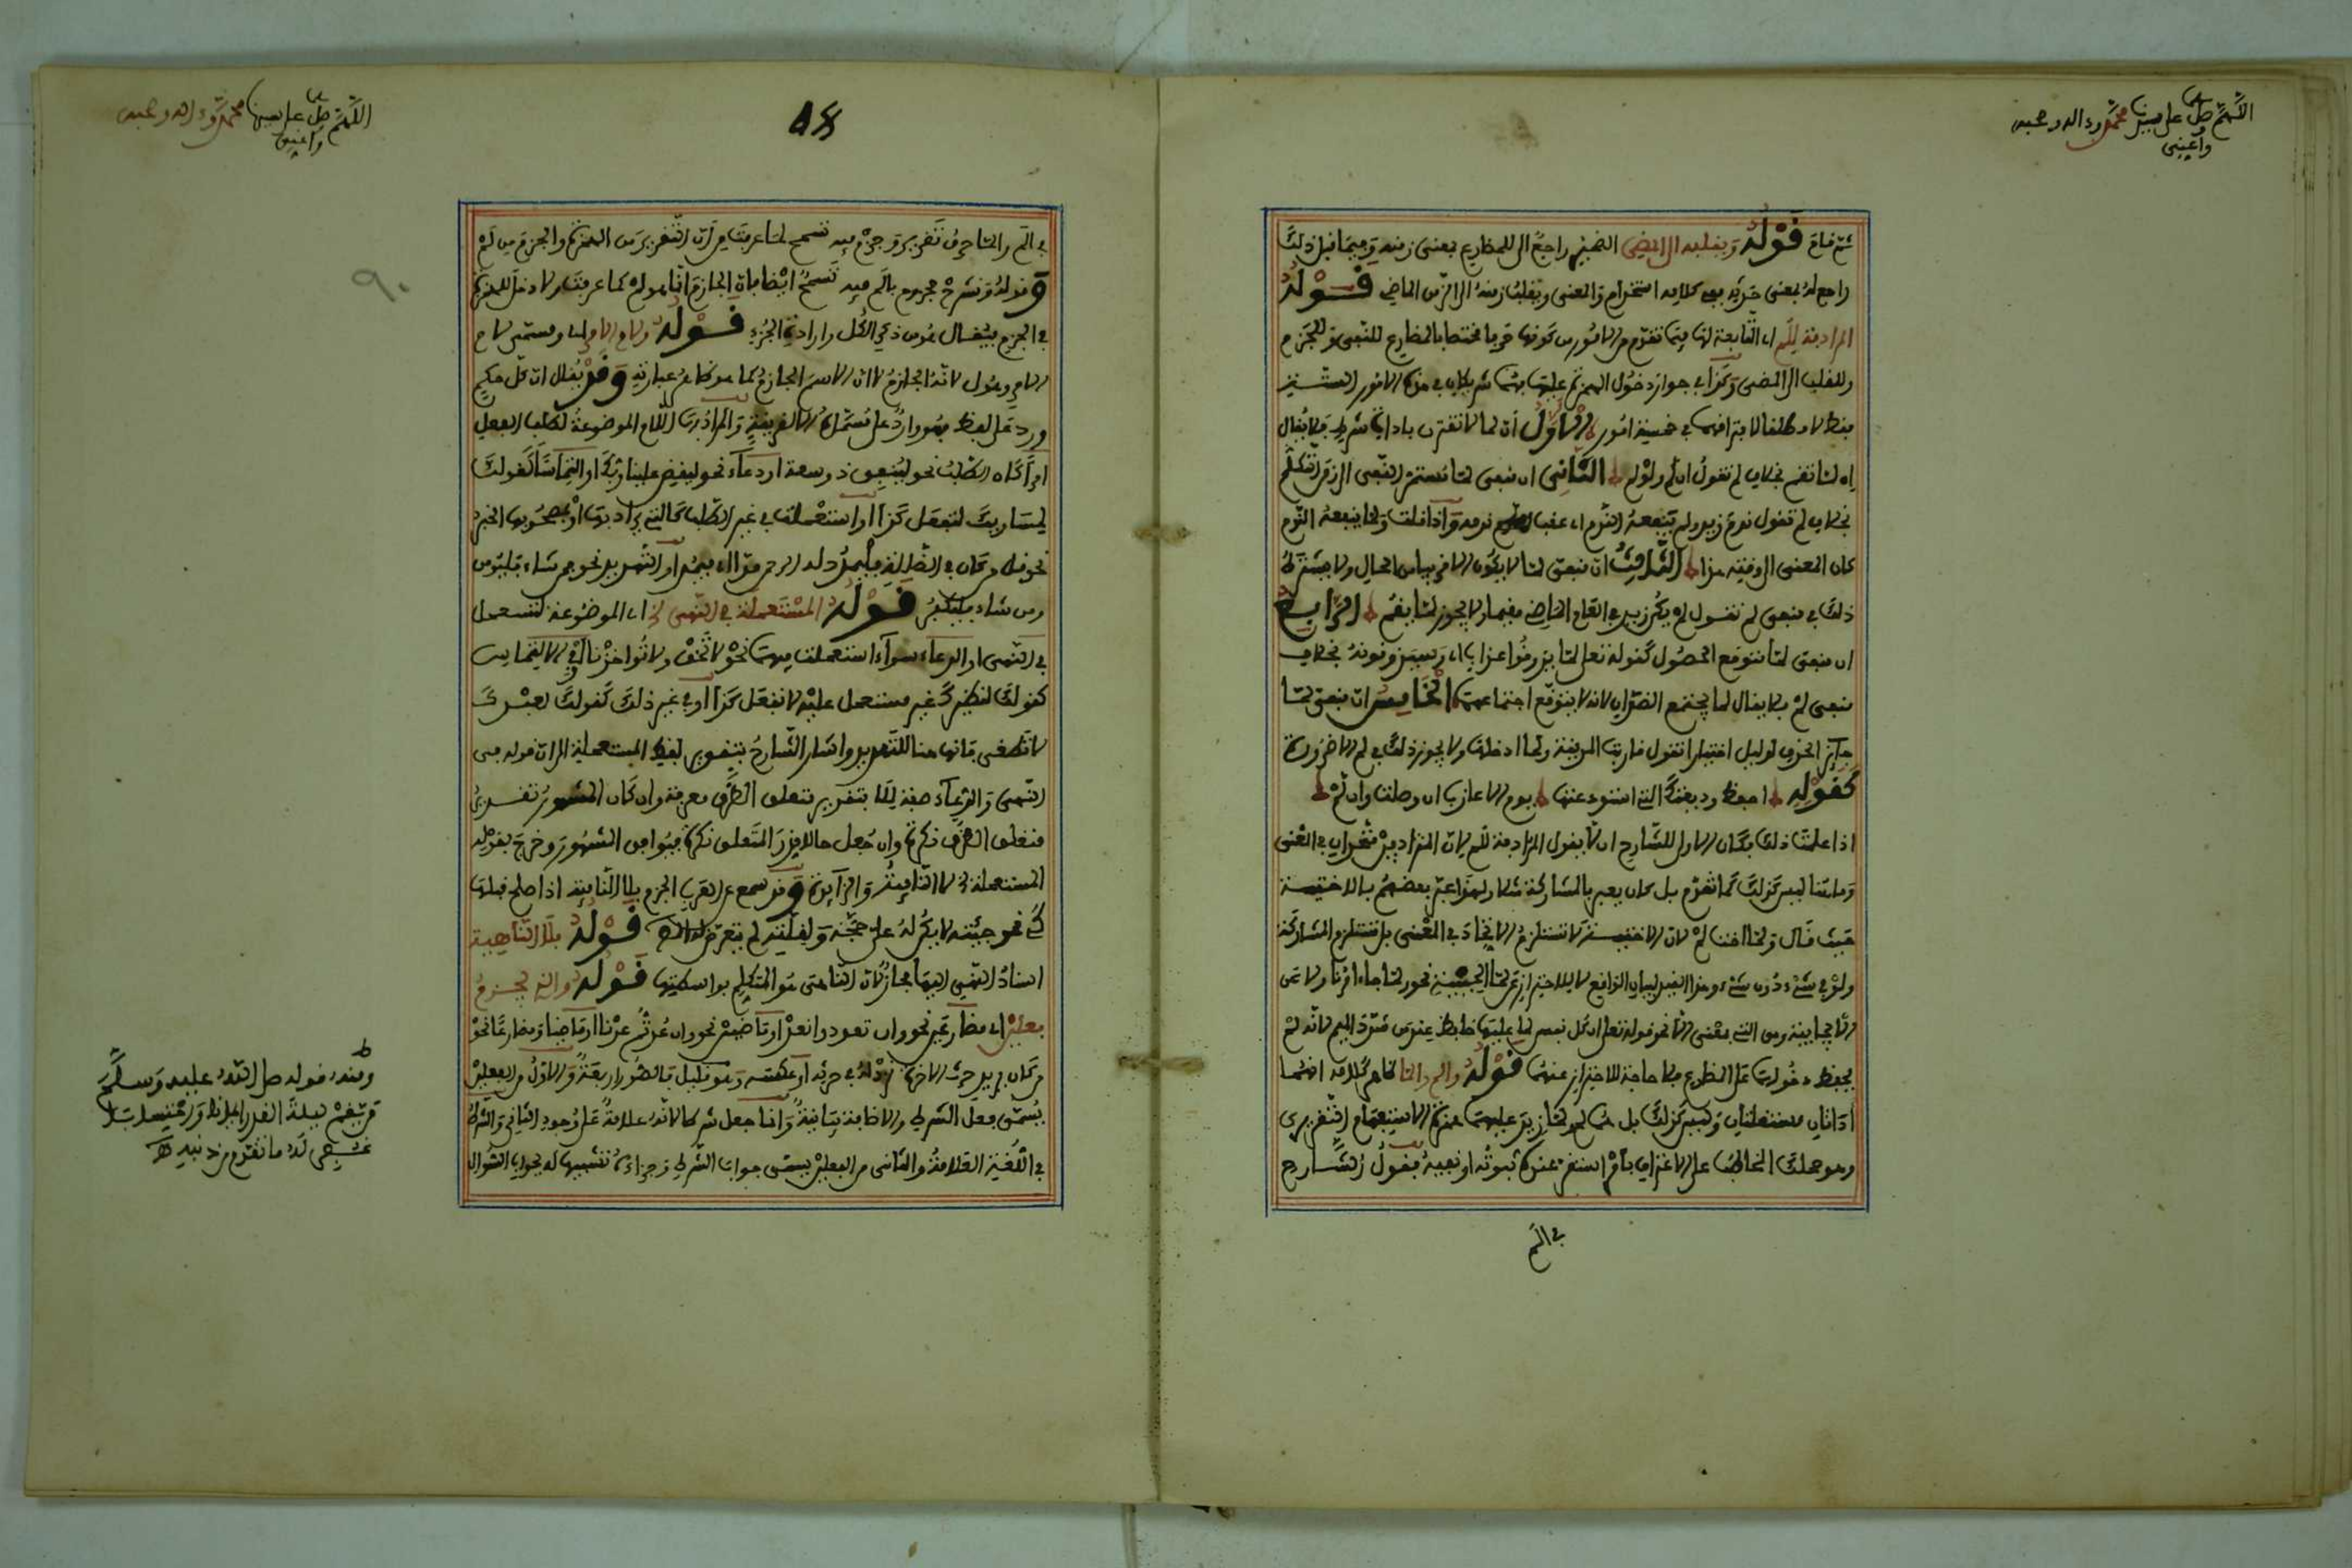 اللهم صل على سيدنا محمد وءاله وصحبه
وأعني
ثم قام قوله ويقلبه إلى المضي الضمير راجع إلى المضارع بمعنى زمنه وفيما قبل ذلك
راجع له بمعنى حدثه ففي كلامه استخدام والمعنى ويقلب زمنه إلى الزمن الماضي قوله
المرادفة للم أي التابعة لها فيما تقدم من الأمور من كونها حرفا مختصا بالمضارع للنفي وللجزم
وللقلب إلى المضي وكذا في جواز دخول الهمزة عليها فهما شريكان في هذه الأمور الستة
فقط لا مطلقا لافتراقهما في خمسة أمور الأول أن لما لا تقترن بأداة شرط فلا يقال
إن لما تقم بخلاف لم تقول إن لم ولو لم الثاني أن منفي لما مستمر النفي إلى زمن التكلم
بخلاف لم تقول ندم زيد ولم ينفعه الندم أي عقب ندمه وإذا قلت ولما ينفعه الندم
كان المعنى إلى وقته هذا الثالث أن منفي لما لا يكون إلا قريبا من الحال ولا يشترط
ذلك في منفي لم تقول لم يكن زيد في العام الماضي مقيما ولا يجوز لما يقم الرابع
أن منفي لما متوقع الحصول كقوله تعلى لما يذوقوا عذاب أي وسيذوقونه بخلاف
منفي لم فلا يقال لما يجتمع الضدان لأنه لا يتوقع اجتماعهما الخامس أن منفي لما
جائز الحذف لدليل اختيارا تقول قاربت المدينة ولما أي أدخلها ولا يجوز ذلك في لم إلا ضرورة
كقوله احفظ وديعتك التي استودعتها يوم الأعازب إن وصلت وإن لم
إذا علمت ذلك فكان الأولى للشارح أن لا يقول المرادفة للم لأن المترادفين متحدان في المعنى
وما هنا ليس كذلك كما تقدم بل كان يعبر بالمشاركة مثلا ولهذا عبر بعضهم بالأختية
حيث قال ولما أخت لم لأن الأختية لا تستلزم الاتحاد في المعنى بل تستلزم المشاركة
ولو في شيء دون شيء وهذا القيد لبيان الواقع لا للاحتراز عن لما الحينية نحو لما جاء أمرنا ولا عن
الإيجابية وهي التي بمعنى إلا نحو قوله تعلى إن كل نفس لما عليها حافظ عند من شدد الميم لأنه لم
يحفظ دخولهما على المضارع فلا حاجة للاحتراز عنهما قوله وألم وألما ظاهر كلامه أنهما
أداتان مستقلتان وليس كذلك بل هما لم ولما زيد عليهما همزة الاستفهام التقريري
وهو حملك المخاطب على الاعتراف بأمر استقر عنده ثبوته أو نفيه فقول الشارح
في ألم
اللهم صل على سيدنا محمد وءاله وصحبه
وأعني
٩٠
في ألم وألما حرف تقرير وجزم فيه تسمح لما عرفت من أن التقرير من الهمزة والجزم من لم
وقوله ونشرح مجزوم بألم فيه تسمح أيضا بأن الجازم إنما هو لم كما عرفت ولا دخل للهمزة
في الجزم فيقال هو من ذكر الكل وإرادة الجزء قوله ولام الأمر أي ومسمى لام
الأمر وهو ل لأنه الجازم لا أن الاسم الجازم كما هو ظاهر عبارته وقد يقال إن كل حكم
ورد على لفظ فهو وارد على مسماه إلا لقرينة والمراد بها اللام الموضوعة لطلب الفعل
أمرا كان الطلب نحو لينفق ذو سعة أو دعاء نحو ليقض علينا ربك أو التماسا كقولك
لمساويك لتفعل كذا أو استعملت في غير الطلب كالتي يراد بها وبمصحوبها الخبر
نحو من كان في الضلالة فليمدد له الرحمن مدا أي فيمد أو التهديد نحو فمن شاء فليومن
ومن شاء فليكفر قوله المستعملة في النهي إلخ أي الموضوعة لتستعمل
في النهي أو الدعاء سواء استعملت فيهما نحو لا تخف ولا تؤاخذنا أو في الالتماس
كقولك لنظيرك غير مستعل عليه لا تفعل كذا أو في غير ذلك كقولك لعبدك
لا تطعني فإنها هنا للتهديد وأشار الشارح بتقدير لفظ المستعملة إلى أن قوله في
النهي والدعاء صفة للا بتقدير متعلق الظرف معرفة وإن كان المشهور تقدير
متعلق الظرف نكرة وإن جعل حالا قدر المتعلق نكرة فيوافق المشهور وخرج بقوله
المستعملة إلخ لا النافية والزائدة وقد سمع عن العرب الجزم بلا النافية إذا صلح قبلها
كي نحو جئته لا يكن له علي حجة ولقلته لم يتعرض له قوله بلا الناهية
إسناد النهي إليها مجاز لأن الناهي هو المتكلم بواسطتها قوله والذي يجزم
فعلين أي مضارعين نحو وإن تعودوا نعد أو ماضيين نحو وإن عدتم عدنا أو ماضيا ومضارعا نحو
من كان يريد حرث الآخرة نزد له في حرثه أو عكسه وهو قليل فالصور أربعة والأول من الفعلين
يسمى فعل الشرط والإضافة بيانية وإنما جعل شرطا لأنه علامة على وجود الثاني والشرط
في اللغة العلامة والثاني من الفعلين يسمى جواب الشرط وجزاءه تشبيها له بجواب السؤال
ومنه قوله صل الله عليه وسلم
من يقم ليلة القدر إيمانا واحتسابا
غفر له ما تقدم من ذنبه